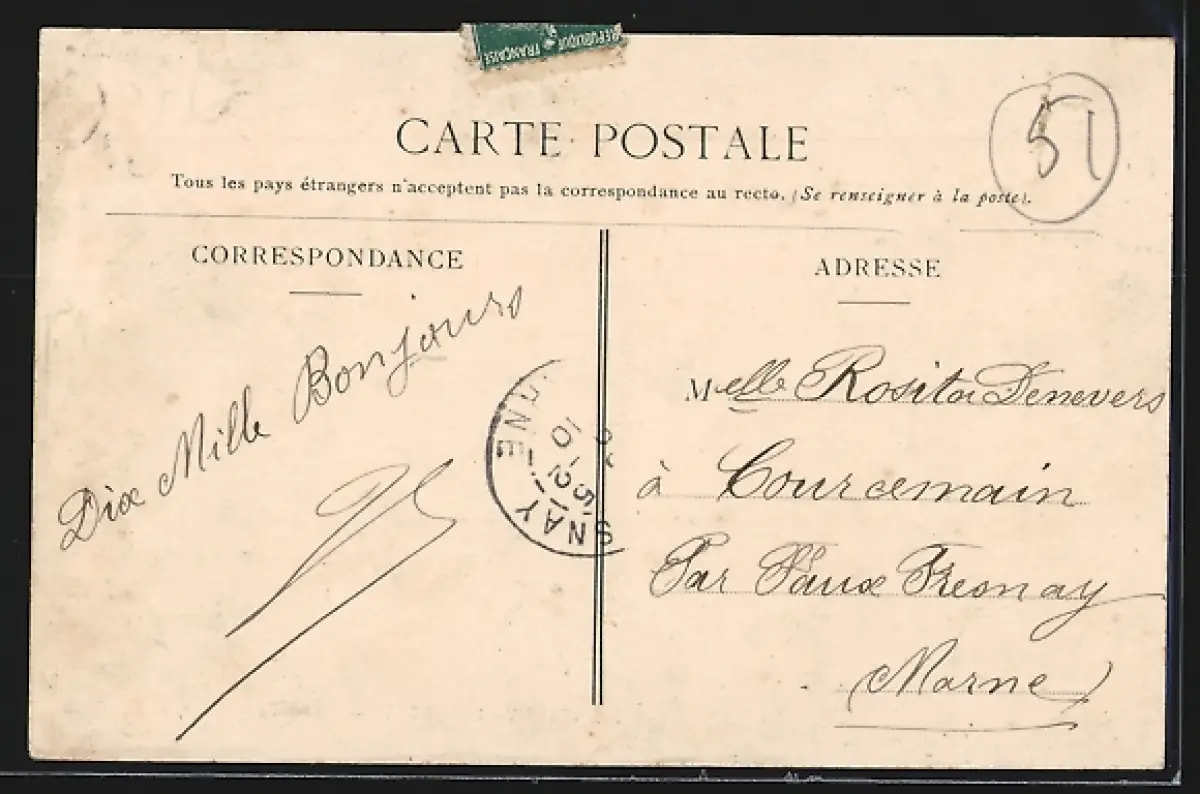 RÉPUBLIQUE FRANÇAISE
CARTE POSTALE
51
Tous les pays étrangers n'acceptent pas la correspondance au recto. (Se renseigner à la poste).
CORRESPONDANCE
Dix Mille Bonjours
ADRESSE
Melle Rosita Denevers
à Courcemain
Par Faux Fresnay
(Marne)
SNAY
RNE